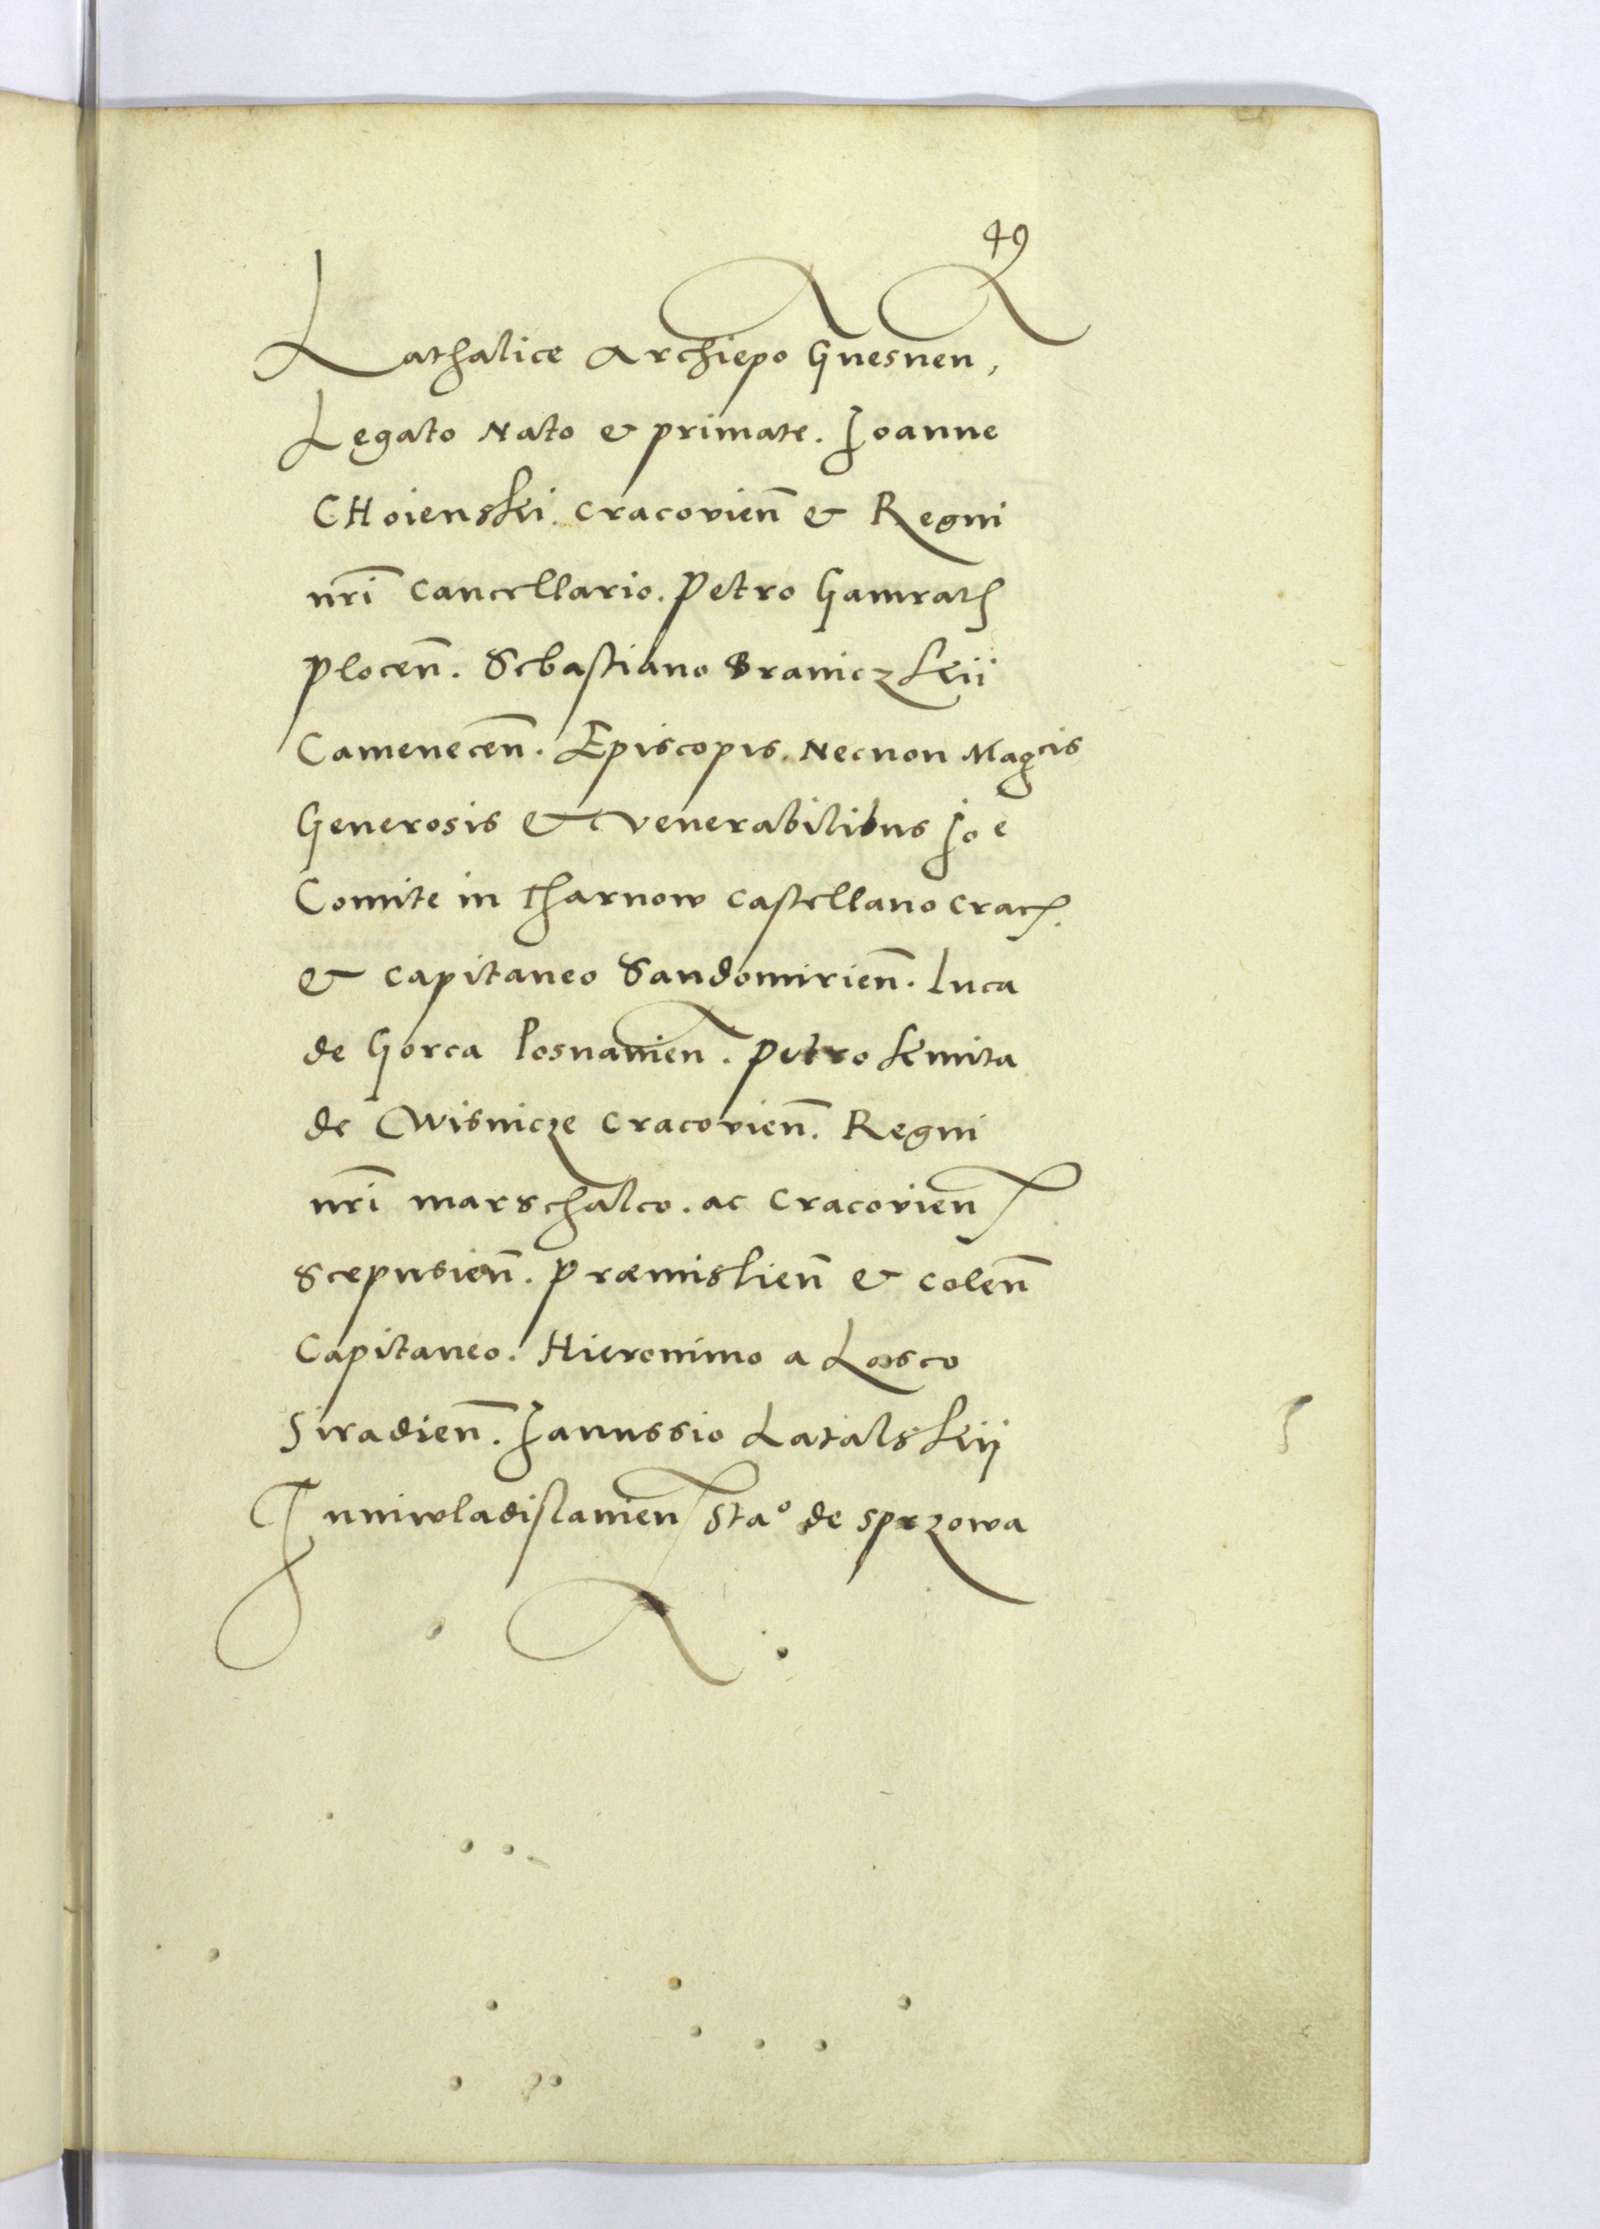 49
Lathalice Archiepo Gnesnen,
Legato Nato & primate. Ioanne
CHoienski. Cracovien̄ & Regni
nr̄i Cancellario. Petro Gamrath
Plocen̄. Sebastiano Braniczkii
Camenecen̄. Episcopis. Necnon Magcis
Generosis & venerabilibus Ioe
Comite in tharnow Castellano Crach.
& Capitaneo Sandomirien̄. Luca
de Gorca Posnanien. Petro kmita
de Wisnicze Cracovien̄. Regni
nr̄i marschalco. ac Cracovien
Scepusien̄. Præmislien̄ & Colen̄
Capitaneo. Hieronimo a Lasco
Siradien̄. Ianussio Latalskij
Iuniwladislavien Stao de sprowa